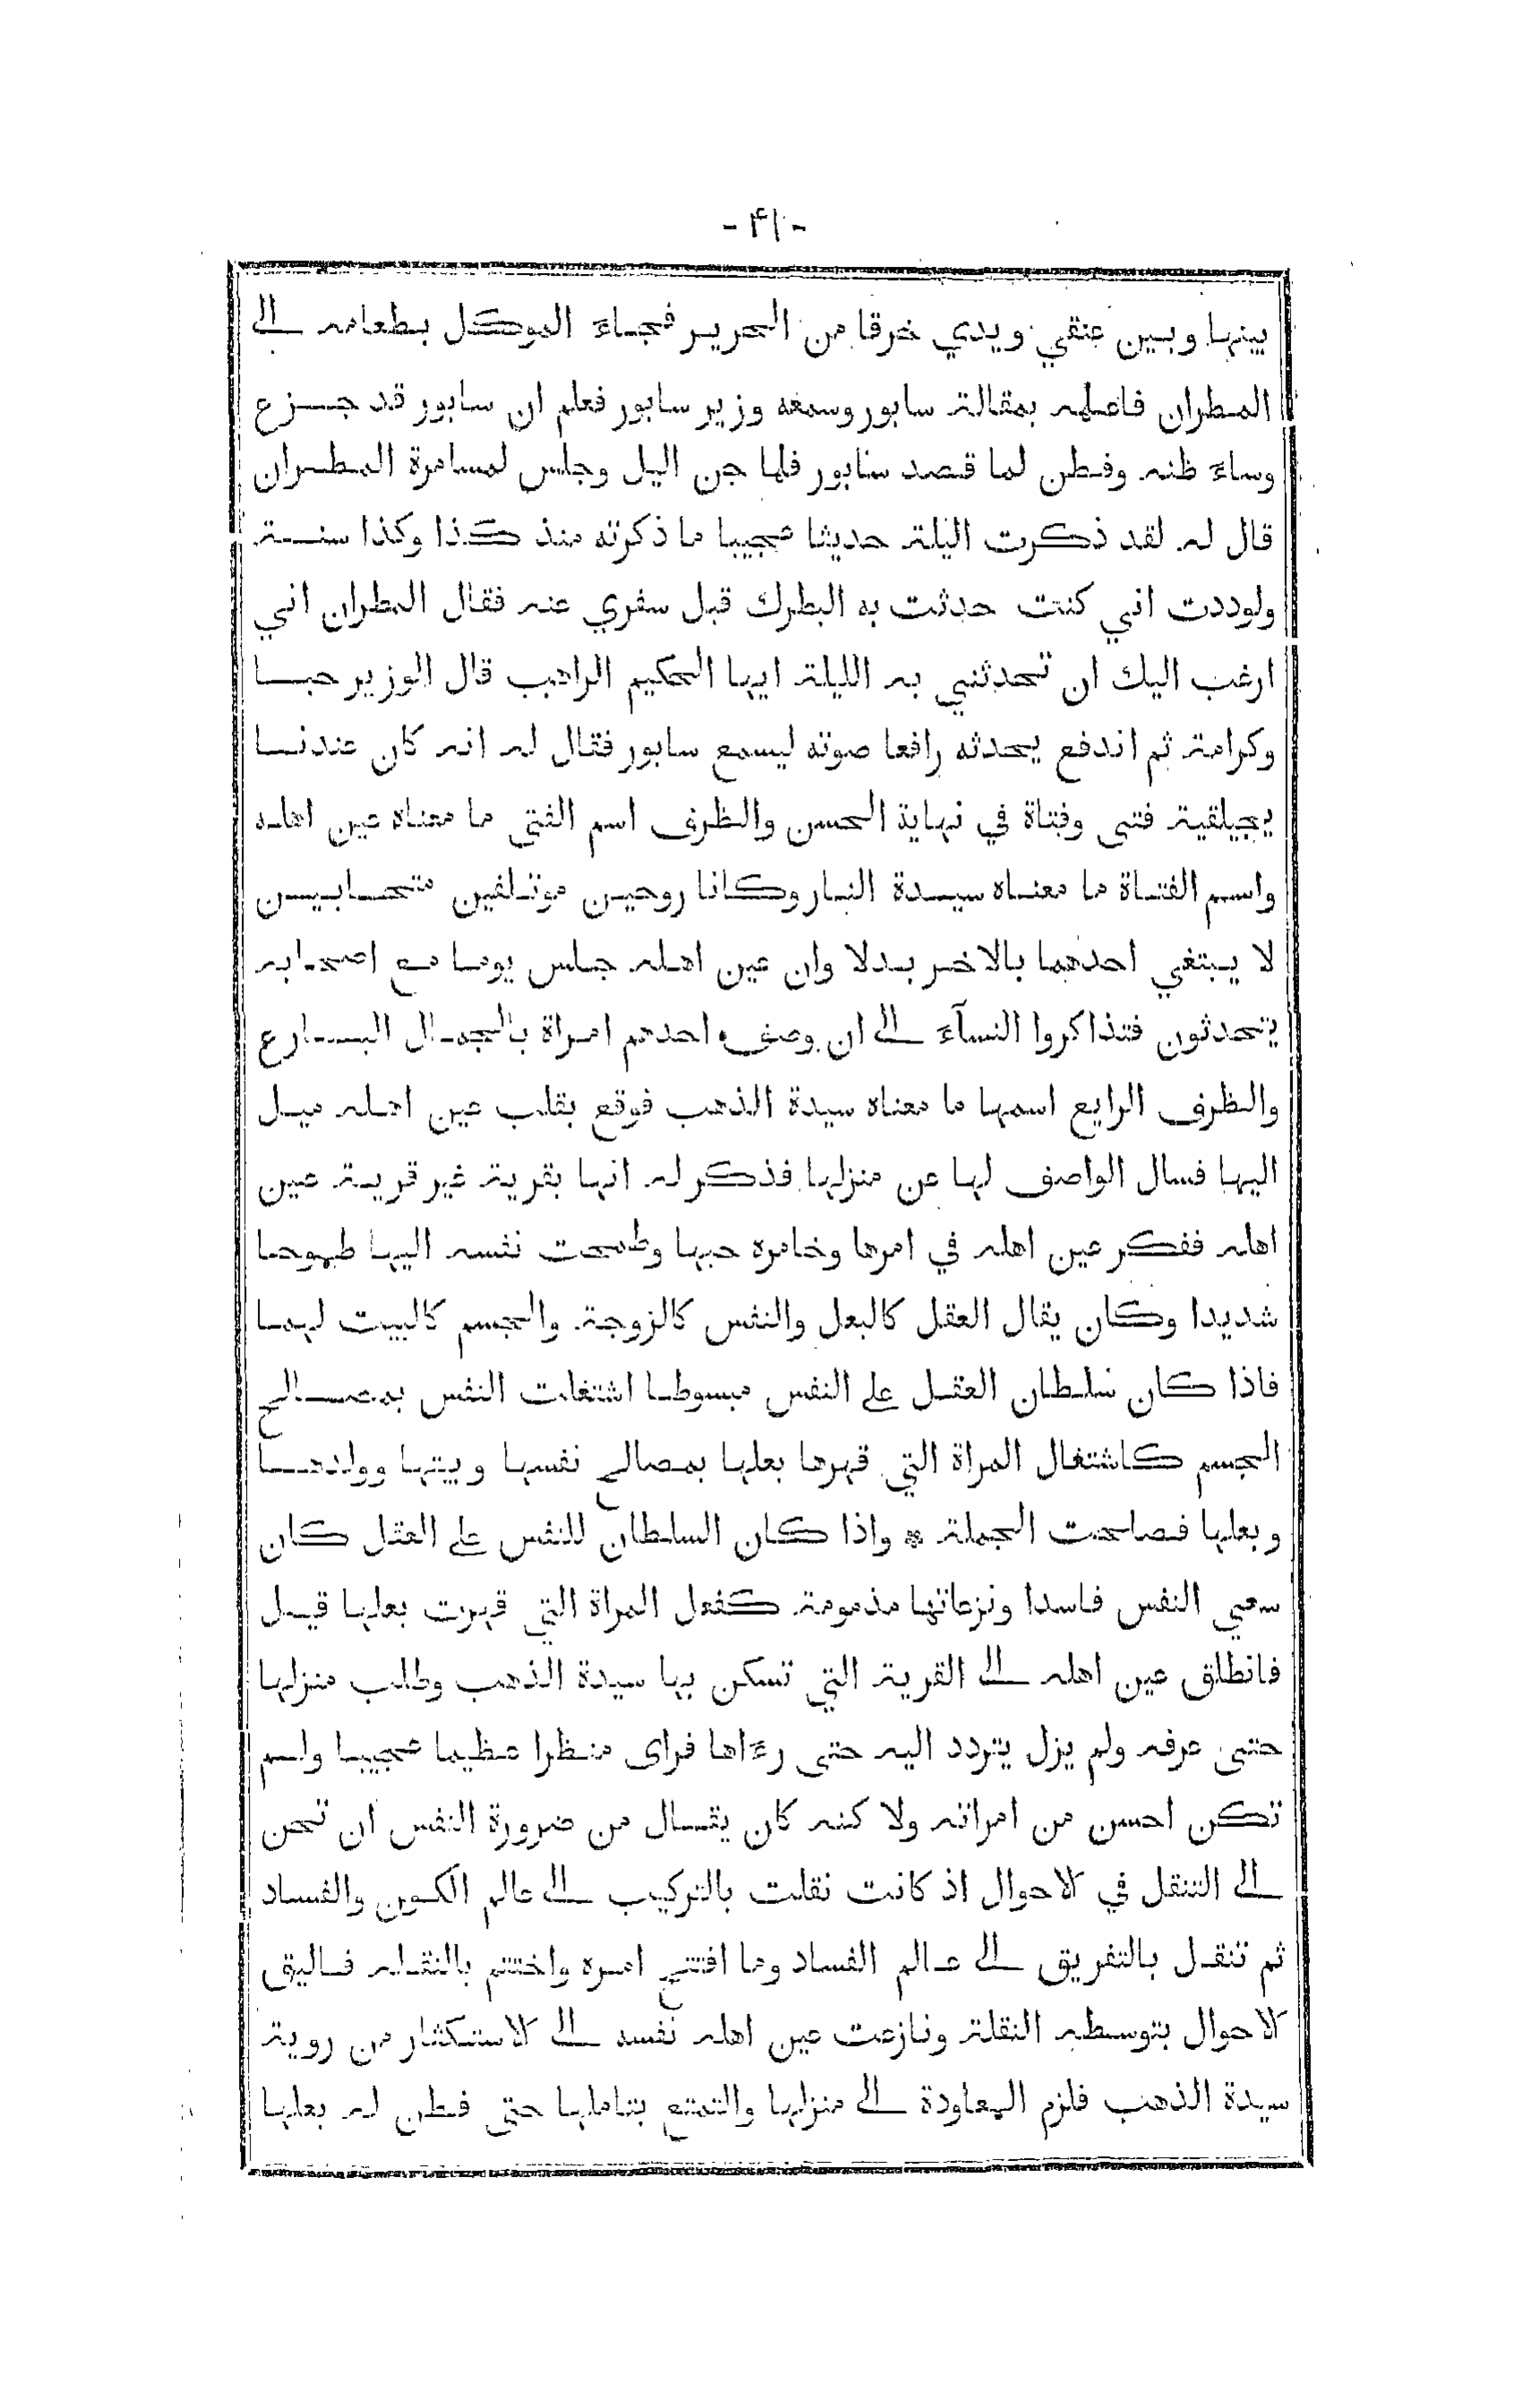 - ٤١ -
بينها وبين عنقي ويدي خرقا من الحرير فجاء الموكل بطعامه الى
المطران فاعلمه بمقالة سابور وسمعه وزير سابور فعلم ان سابور قد جزع
وساء ظنه وفطن لما قصد سابور فلما جن اليل وجلس لمسامرة المطران
قال له لقد ذكرت اليلة حديثا عجيبا ما ذكرته منذ كذا وكذا سنة
ولوددت اني كنت حدثت به البطرك قبل سفري عنه فقال المطران اني
ارغب اليك ان تحدثني به الليلة ايها الحكيم الراهب قال الوزير حبا
وكرامة ثم اندفع يحدثه رافعا صوته ليسمع سابور فقال له انه كان عندنا
بجيلقية فتى وفتاة في نهاية الحسن والظرف اسم الفتى ما معناه عين اهله
واسم الفتاة ما معناه سيدة النار وكانا روحين موتلفين متحابين
لا يبتغي احدهما بالاخر بدلا وان عين اهله جلس يوما مع اصحابه
يتحدثون فتذاكروا النسآء الى ان وصف احدهم امراة بالجمال البارع
والظرف الرايع اسمها ما معناه سيدة الذهب فوقع بقلب عين اهله ميل
اليها فسال الواصف لها عن منزلها فذكر له انها بقرية غير قرية عين
اهله ففكر عين اهله في امرها وخامره حبها وطمحت نفسه اليها طموحا
شديدا وكان يقال العقل كالبعل والنفس كالزوجة والجسم كالبيت لهما
فاذا كان سلطان العقل على النفس مبسوطا اشتغلت النفس بمصالح
الجسم كاشتغال المراة التي قهرها بعلها بمصالح نفسها وبيتها وولدها
وبعلها فصلحت الجملة * واذا كان السلطان للنفس على العقل كان
سعي النفس فاسدا ونزعاتها مذمومة كفعل المراة التي قهرت بعلها قيل
فانطلق عين اهله الى القرية التي تسكن بها سيدة الذهب وطلب منزلها
حتى عرفه ولم يزل يتردد اليه حتى رءاها فراى منظرا عظيما عجيبا ولم
تكن احسن من امراته ولاكنه كان يقال من ضرورة النفس ان تحن
الى التنقل في الاحوال اذ كانت نقلت بالتركيب الى عالم الكون والفساد
ثم تنقل بالتفريق الى عالم الفساد وما افتتح امره واختتم بالنقله فاليق
الاحوال بتوسطه النقلة ونازعت عين اهله نفسه الى الاستكثار من روية
سيدة الذهب فلزم المعاودة الى منزلها والتمتع بتاملها حتى فطن له بعلها